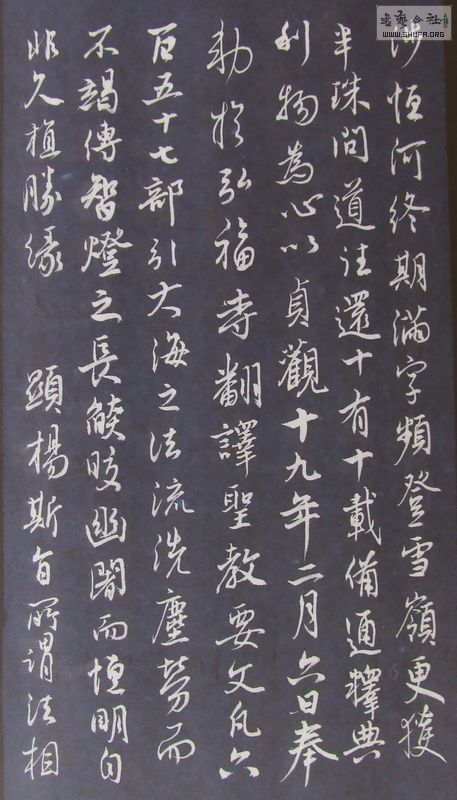 書藝公社
WWW.SHUFA.ORG
涉恒河終期滿字頻登雪嶺更獲
半珠問道往還十有十載備通釋典
利物為心以貞觀十九年二月六日奉
勅於弘福寺翻譯聖教要文凡六
百五十七部引大海之法流洗塵勞而
不竭傳智燈之長燄皎幽闇而恒明自
非久植勝緣 顯楊斯旨所謂法相